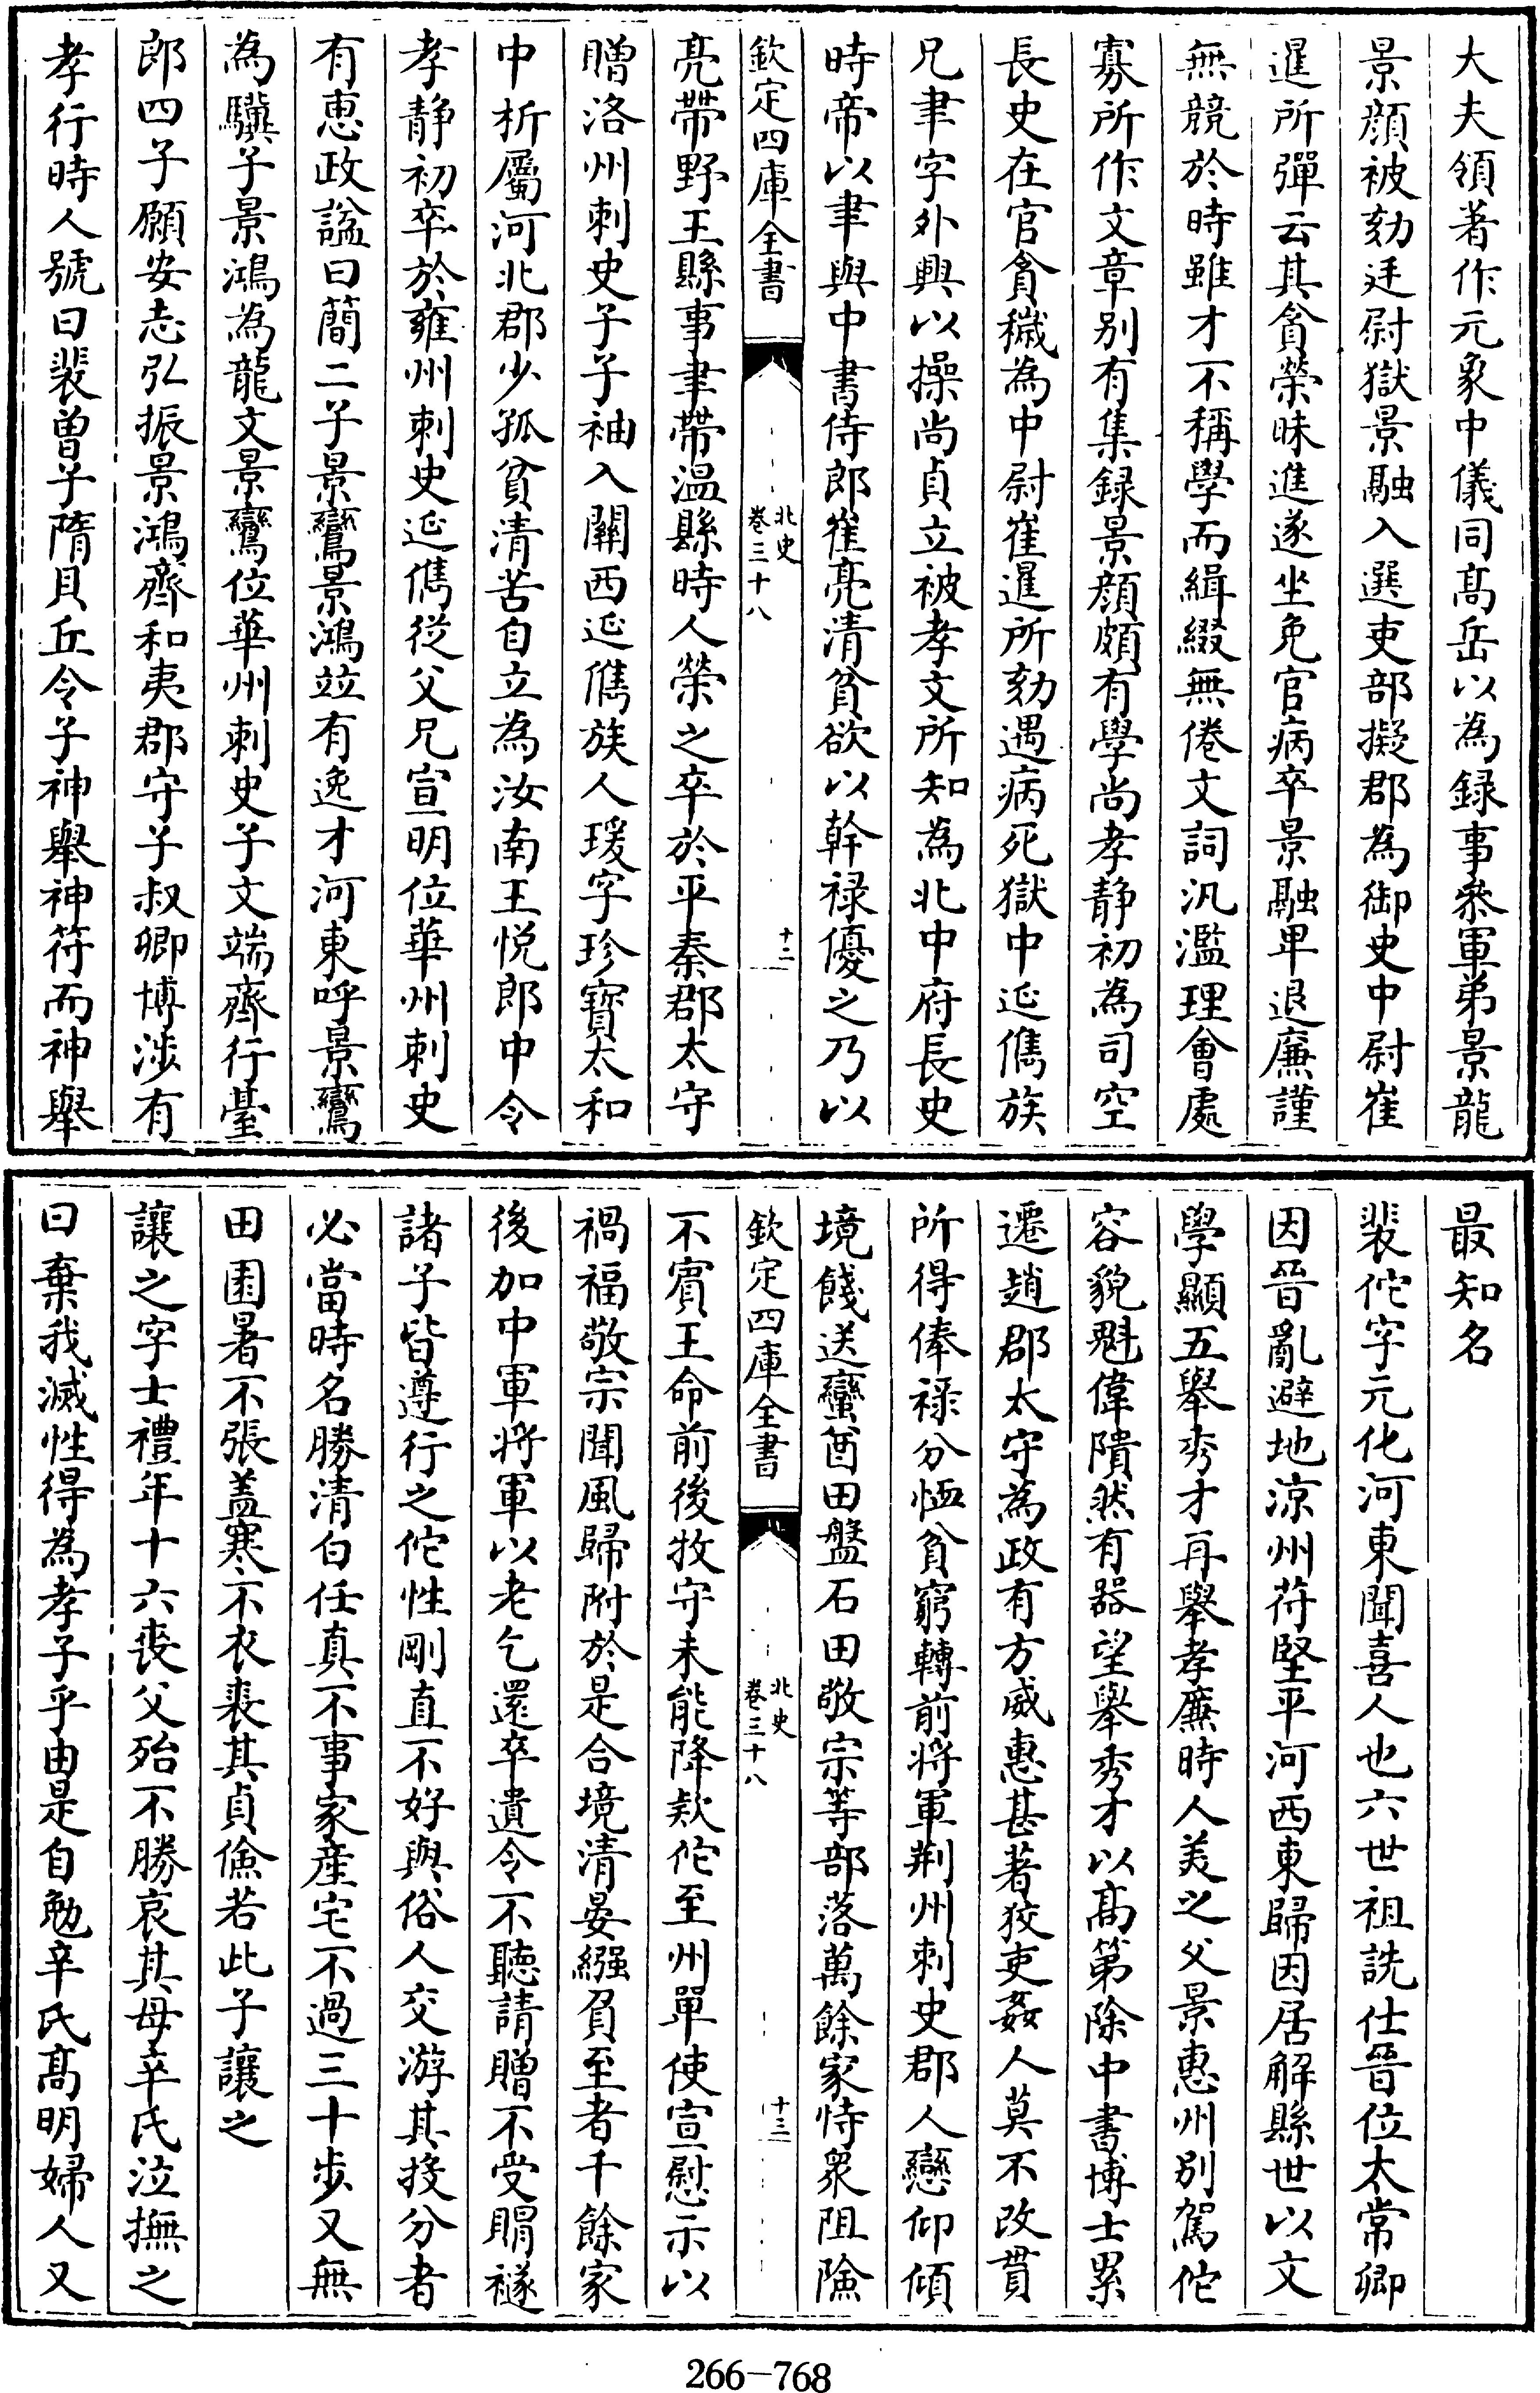 大夫領著作元象中儀同髙岳以為録事叅軍弟景龍
景顔被劾廷尉獄景融入選吏部擬郡為御史中尉崔
暹所彈云其貪榮昧進遂坐免官病卒景融卑退廉謹
無競於時雖才不稱學而緝綴無倦文詞汎濫理會處
寡所作文章别有集録景顔頗有學尚孝静初為司空
長史在官貪穢為中尉崔暹所劾遇病死獄中延儁族
兄聿字外興以操尚貞立被孝文所知為北中府長史
時帝以聿與中書侍郎崔亮清貧欲以幹禄優之乃以
欽定四庫全書
北史
卷三十八
十二
亮帶野王縣事聿帶温縣時人榮之卒於平秦郡太守
贈洛州刺史子子袖入關西延儁族人瑗字珍寶太和
中析屬河北郡少孤貧清苦自立為汝南王悦郎中令
孝静初卒於雍州刺史延儁從父兄宣明位華州刺史
有惠政諡曰簡二子景鸞景鴻竝有逸才河東呼景鸞
為驥子景鴻為龍文景鸞位華州刺史子文端齊行臺
郎四子願安志弘振景鴻齊和夷郡守子叔卿博涉有
孝行時人號曰裴曽子隋貝丘令子神舉神符而神舉
最知名
裴佗字元化河東聞喜人也六世祖詵仕晉位太常卿
因晉亂避地涼州苻堅平河西東歸因居解縣世以文
學顯五舉秀才再舉孝廉時人美之父景惠州别駕佗
容貌魁偉隤然有器望舉秀才以髙第除中書博士累
遷趙郡太守為政有方威惠甚著狡吏姦人莫不改貫
所得俸禄分恤貧窮轉前将軍荆州刺史郡人戀仰傾
境餞送蠻酋田盤石田敬宗等部落萬餘家恃衆阻險
欽定四庫全書
北史
卷三十八
十三
不賓王命前後牧守未能降欵佗至州單使宣慰示以
禍福敬宗聞風歸附於是合境清晏繈負至者千餘家
後加中軍将軍以老乞還卒遺令不聽請贈不受賵襚
諸子皆遵行之佗性剛直不好與俗人交游其投分者
必當時名勝清白任真不事家産宅不過三十步又無
田園暑不張葢寒不衣裘其貞儉若此子讓之
讓之字士禮年十六喪父殆不勝哀其母辛氏泣撫之
曰棄我滅性得為孝子乎由是自勉辛氏髙明婦人又
266-768